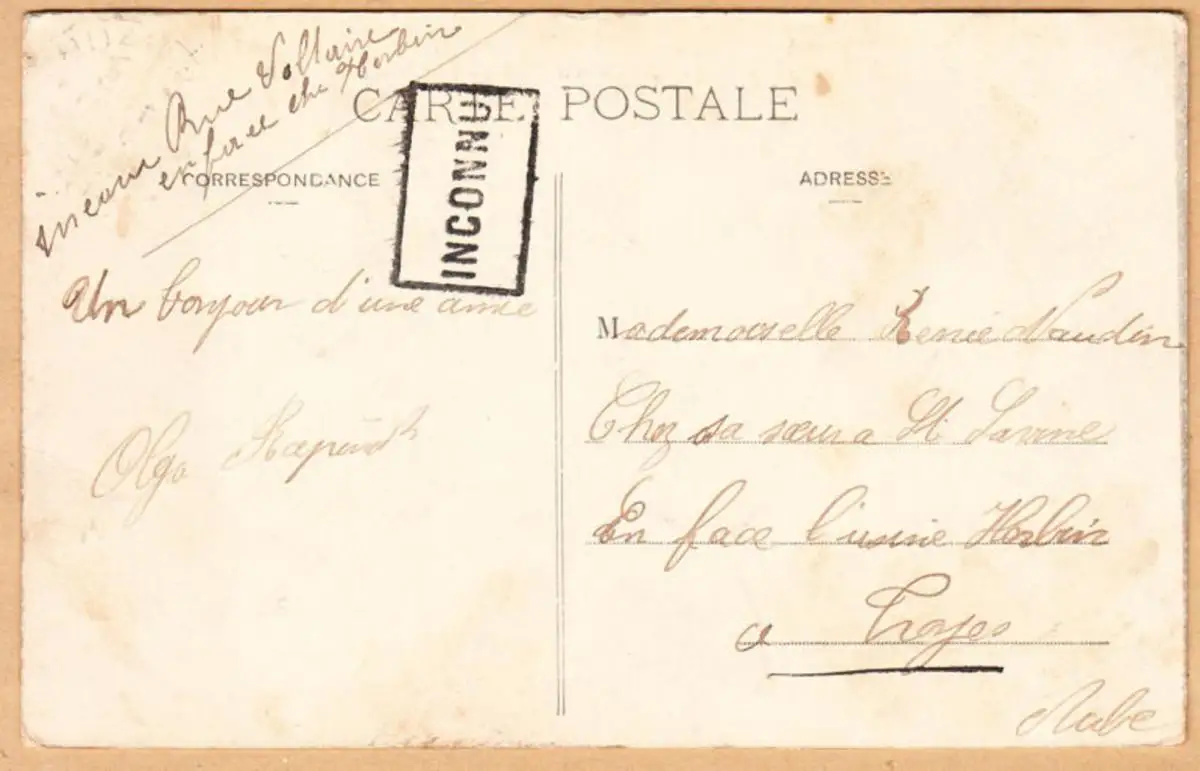 inconnu Rue Voltaire
en face chez Herbin
CARTE POSTALE
INCONNU
CORRESPONDANCE
ADRESSE
Un bonjour d'une amie
Olga
Mademoiselle Renée Naudin
Chez sa sœur a St Savine
En face l'usine Herbin
a Troyes
Aube